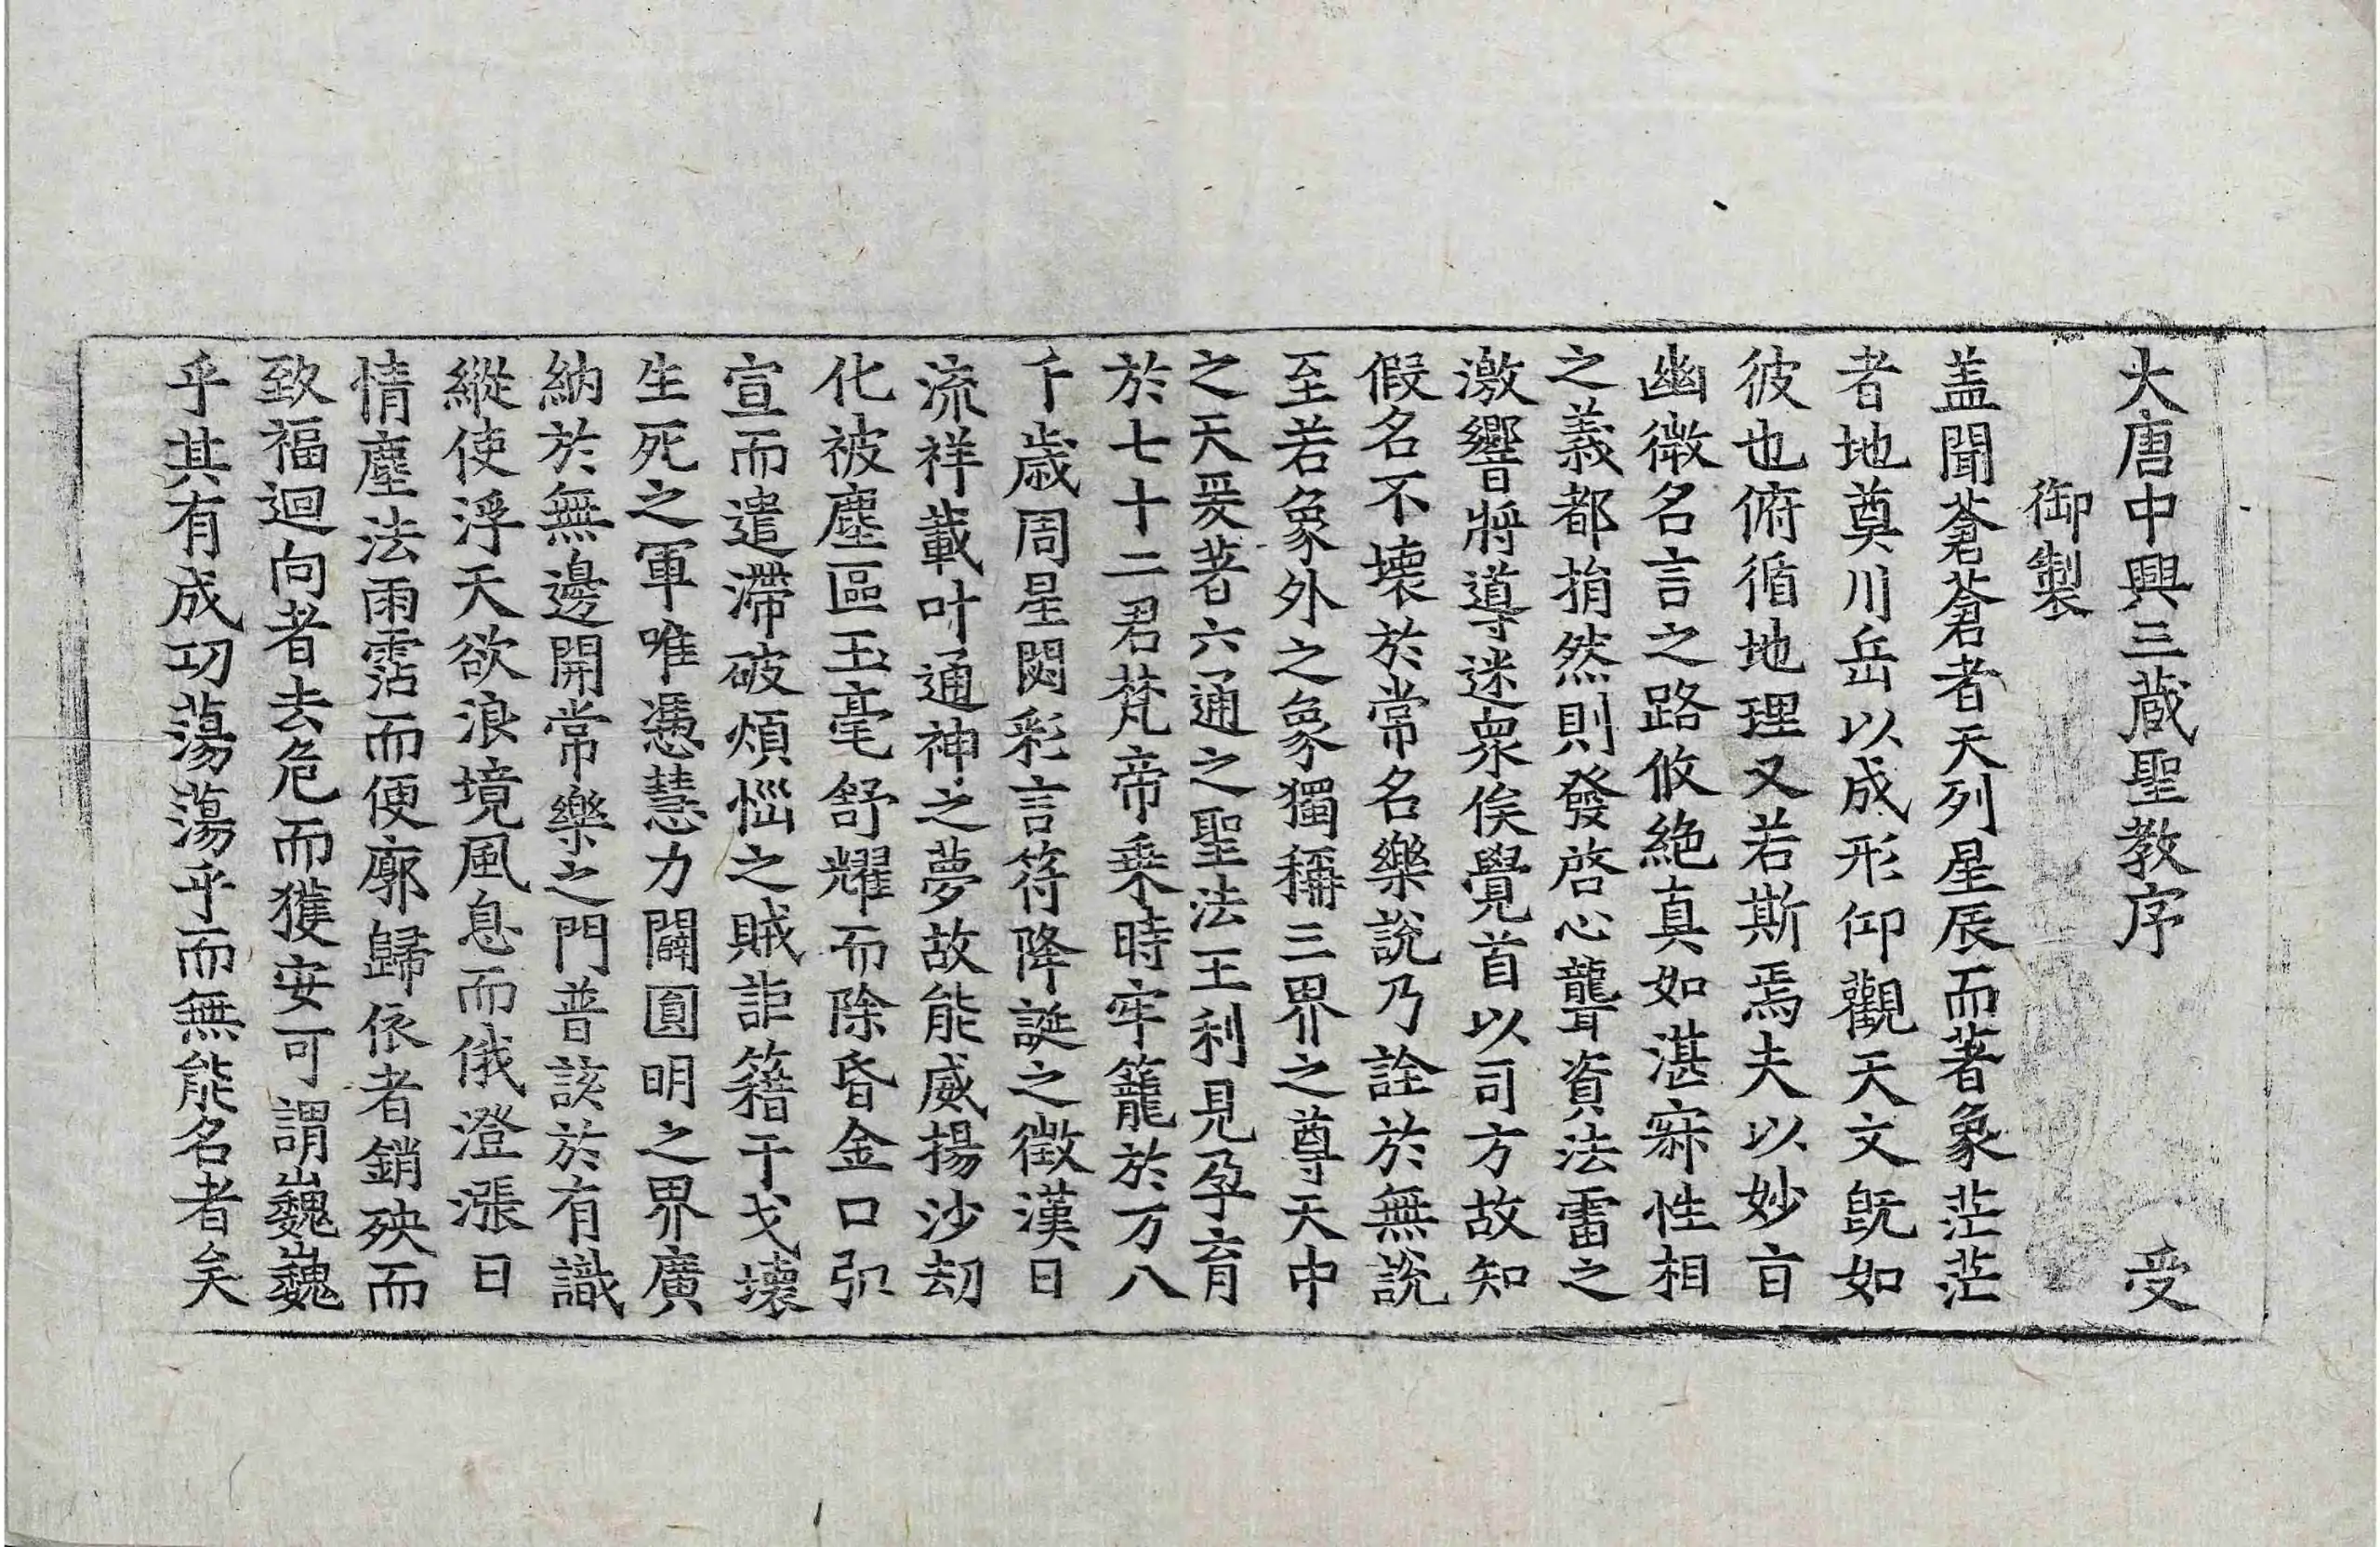 大唐中興三蔵聖教序　受
御製
盖聞蒼蒼者天列星辰而著象茫茫
者地奠川岳以成形仰觀天文旣如
彼也俯循地理又若斯焉夫以妙㫖
幽微名言之路攸絶真如湛寂性相
之義都捐然則發啓心聾資法雷之
激響將導迷衆俟覺首以司方故知
假名不壞於常名樂說乃詮於無說
至若象外之象獨稱三界之尊天中
之天爰著六通之聖法王利見孕育
於七十二君梵帝乗時牢籠於万八
千歳周星閟彩言符降誕之徵漢日
流祥載叶通神之夢故能威揚沙劫
化被塵區玉毫舒耀而除昏金口弘
宣而遣滯破煩惱之賊詎籍干戈壞
生死之軍唯憑慧力闢圓明之界廣
納於無邊開常樂之門普該於有識
縱使浮天欲浪境風息而俄澄漲日
情塵法雨霑而便廓歸依者銷殃而
致福迴向者去危而獲安可謂巍巍
乎其有成功蕩蕩乎而無能名者矣